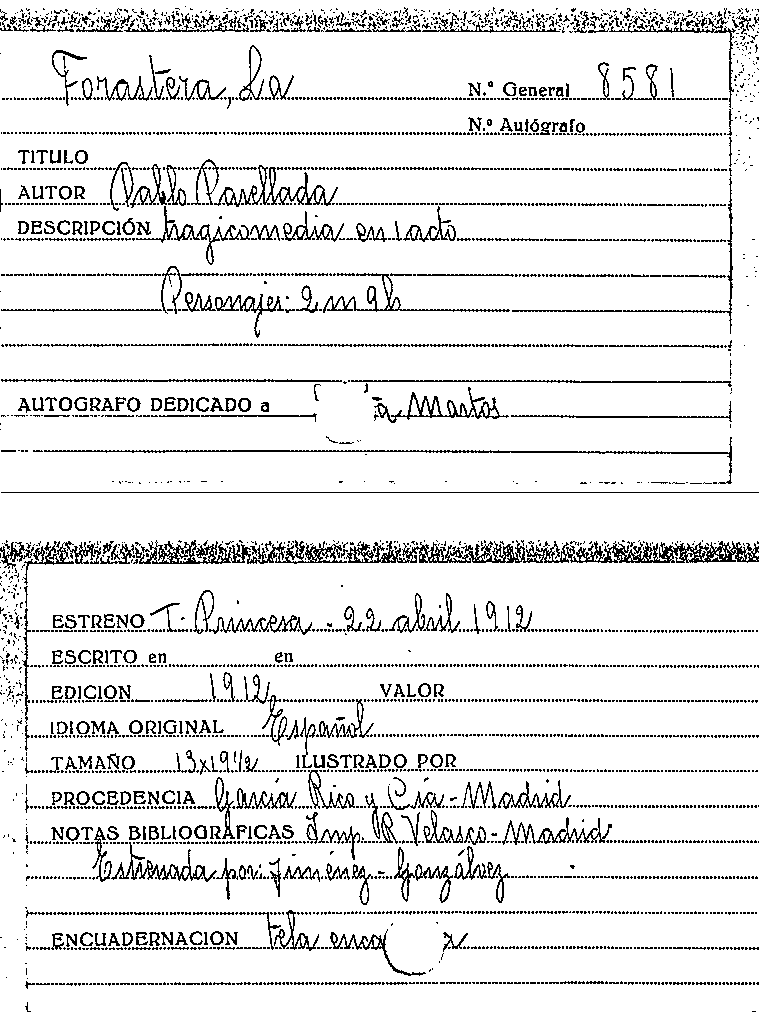 Forastera, La
N.º General 8581
N.º Autógrafo
TITULO
AUTOR Pablo Parellada
DESCRIPCIÓN tragicomedia en 1 acto
Personajes: 2 m 9 h
AUTOGRAFO DEDICADO a Martos
ESTRENO T. Princesa - 22 abril 1912
ESCRITO en en
EDICION 1912 VALOR
IDIOMA ORIGINAL Español
TAMAÑO 13x19 1/2 ILUSTRADO POR
PROCEDENCIA García Rico y Cía - Madrid
NOTAS BIBLIOGRAFICAS Imp. R Velasco - Madrid
Estrenada por: Jiménez - Gonzálvez
ENCUADERNACION tela